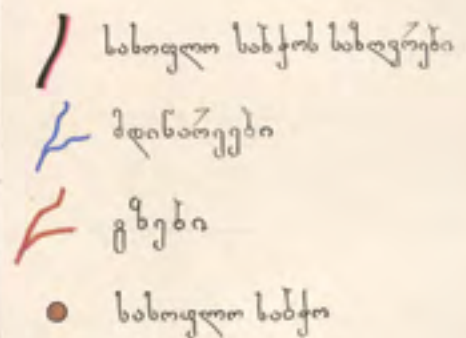 სასოფლო საბჭოს საზღვრები
მდინარეები
გზები
სასოფლო საბჭო